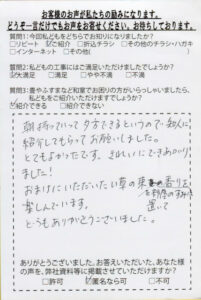 お客様のお声が私たちの励みになります。
どうぞ一言だけでもお声をお答えください、お待ちしております。
質問1:今回私どもをどちらでお知りになりましたか?
□リピート ☑ご紹介 □折込チラシ □その他のチラシ・ハガキ
□インターネット □その他(
質問2:私どもの工事にはご満足いただけましたでしょうか?
☑大満足 □満足 □やや不満 □不満
質問3:畳やふすまなど和室でお困りの方がいらっしゃいましたら、
私どもをご紹介いただけますでしょうか?
☑紹介できる □紹介できない
朝持っていって夕方できるというので知人に
紹介してもらってお願いしました。
とてもよかったです。きれいにできあがり
ました!
おまけにいただいたい草の香りを
置いて
楽しんでいます。
どうもありがとうございました。
ありがとうございました。お答えいただいた、あなた様
の声を、弊社資料等に掲載させていただけますか?
□許可 ☑匿名なら可 □不可